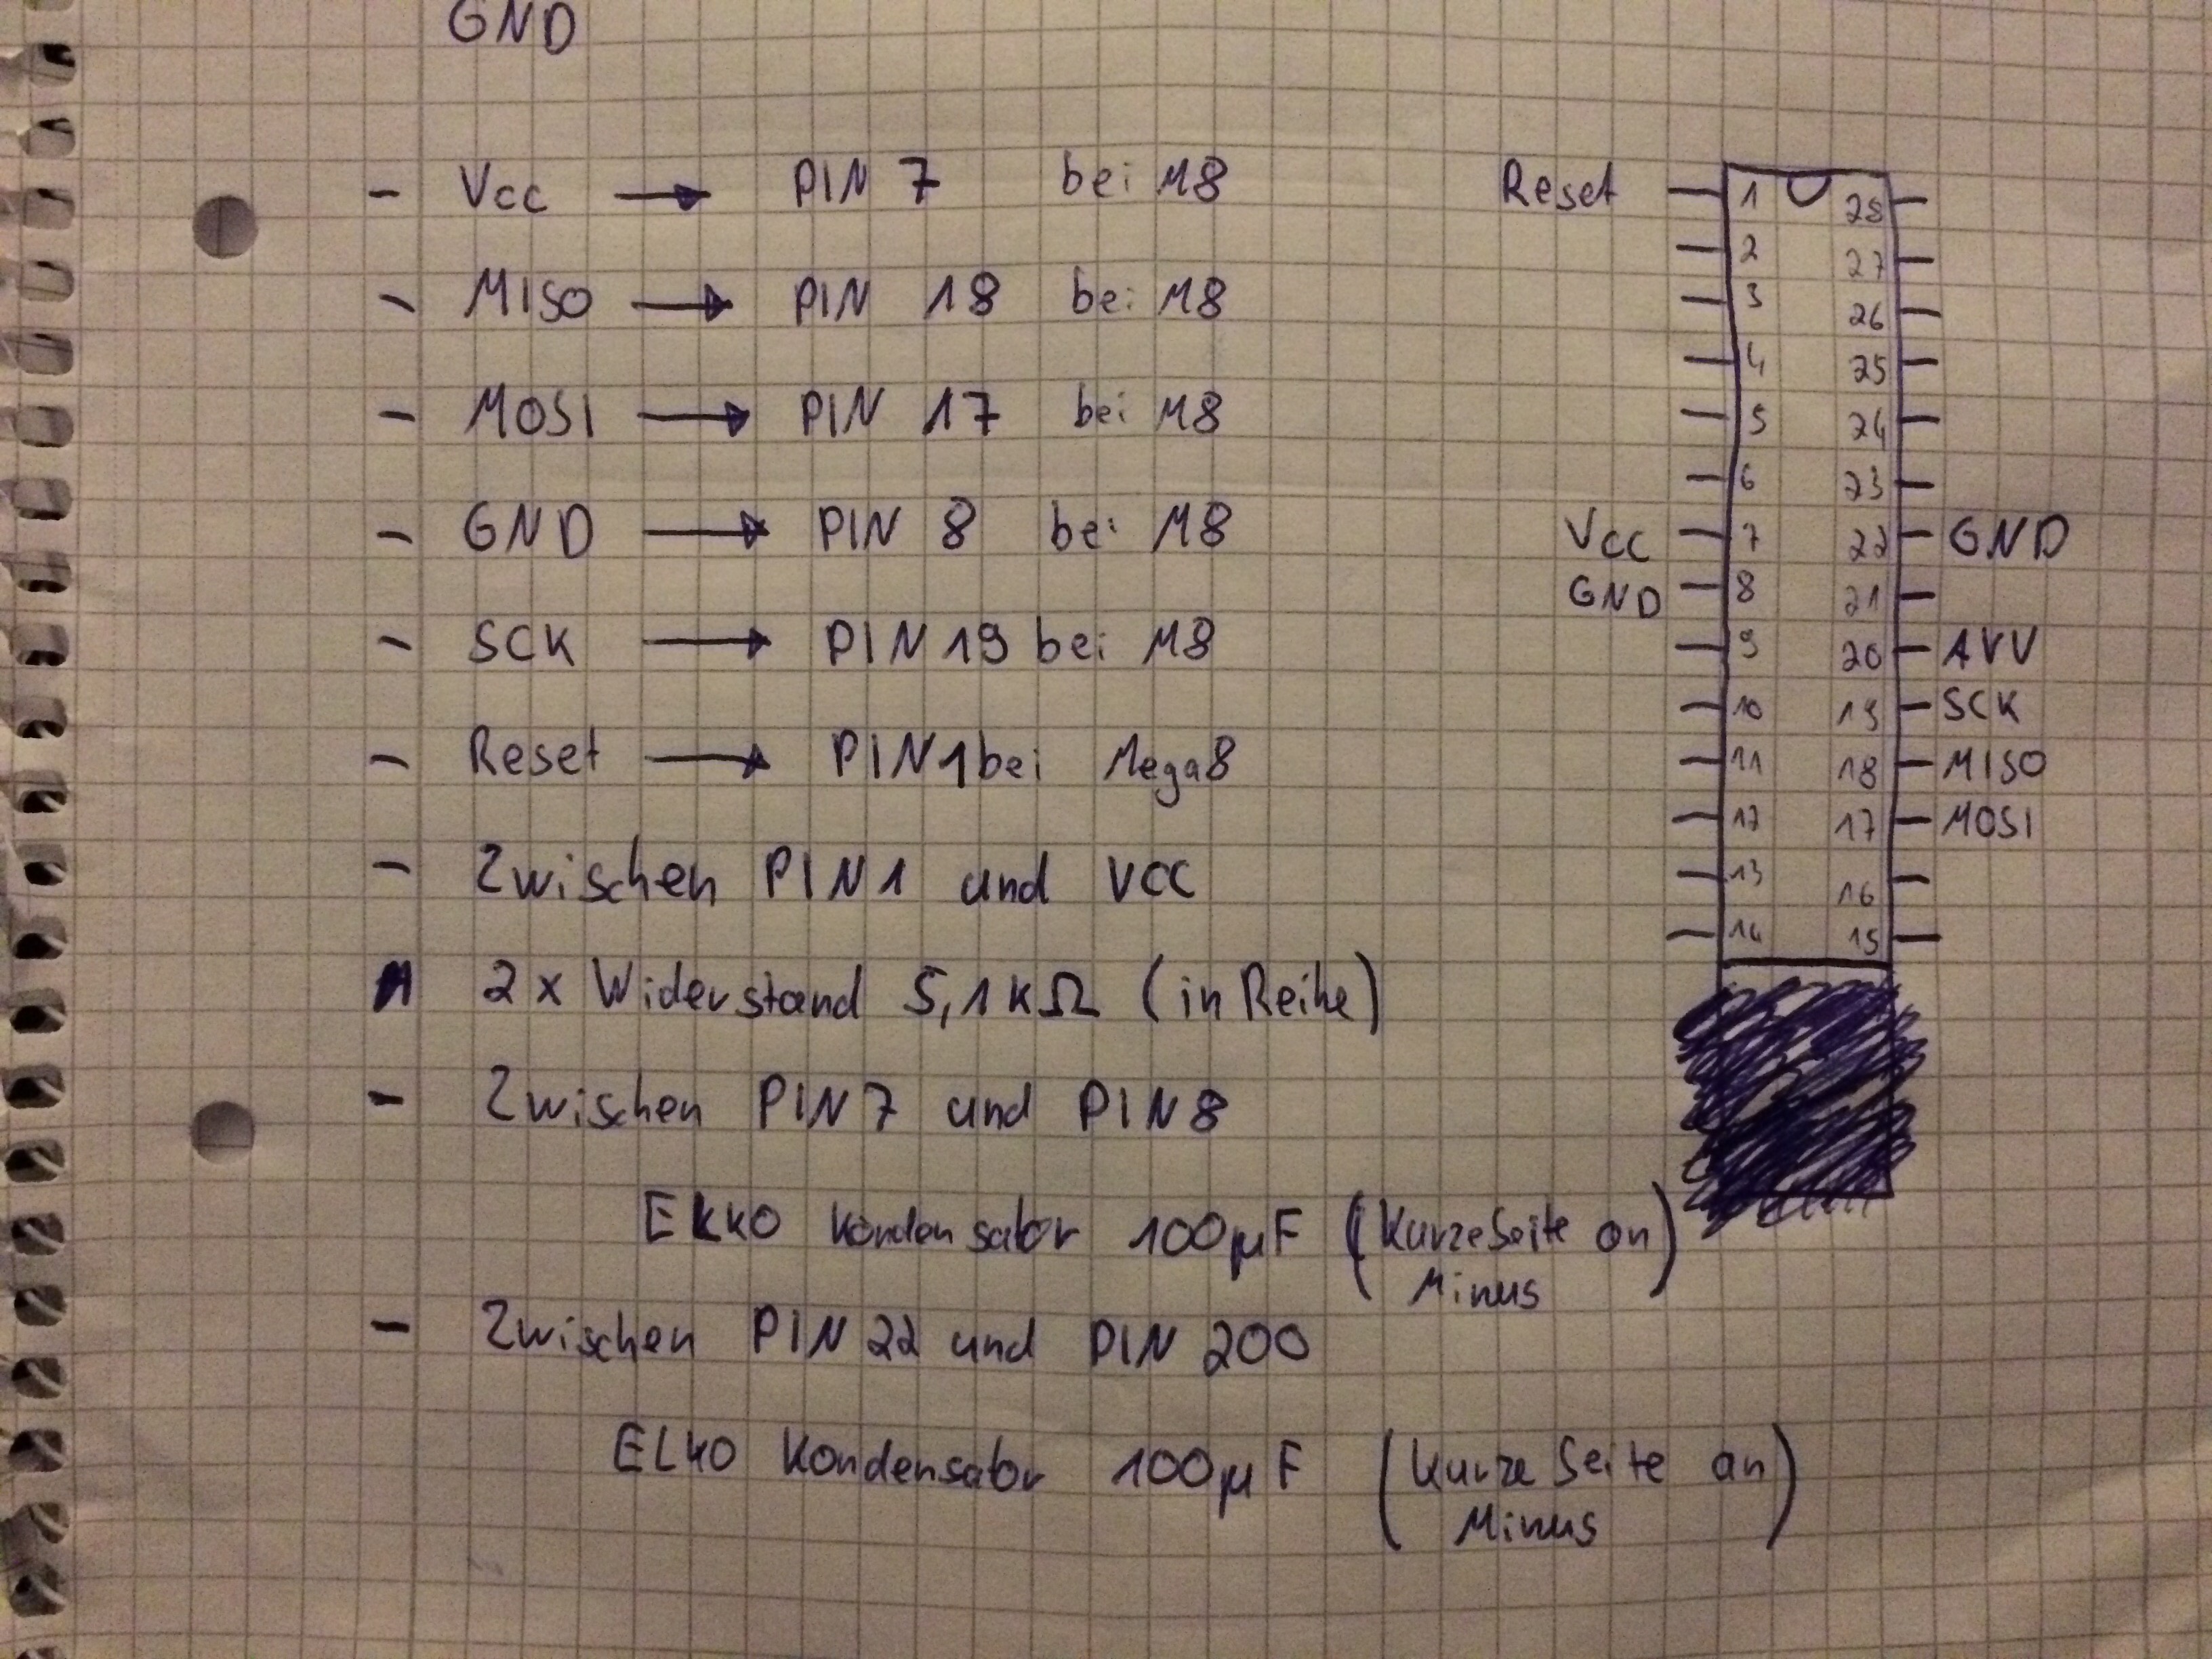 GND
- Vcc → PIN 7 bei M8
- MISO → PIN 18 bei M8
- MOSI → PIN 17 bei M8
- GND → PIN 8 bei M8
- SCK → PIN 19 bei M8
- Reset → PIN 1 bei Mega8
- Zwischen PIN 1 und VCC
2x Widerstand 5,1 kΩ (in Reihe)
- Zwischen PIN 7 und PIN 8
EKKO Kondensator 100µF (Kurze Seite an
Minus)
- Zwischen PIN 22 und PIN 200
ELKO Kondensator 100µF (Kurze Seite an
Minus)
Reset 1 28
2 27
3 26
4 25
5 24
6 23
Vcc 7 22 GND
GND 8 21
9 20 AVV
10 19 SCK
11 18 MISO
12 17 MOSI
13 16
14 15